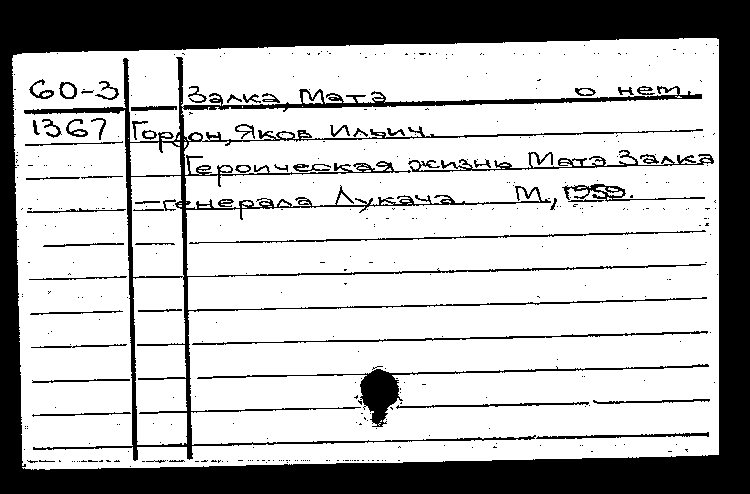 60-3 Залка, Матэ о нем.
1367 Гордон, Яков Ильич.
Героическая жизнь Матэ Залка
—генерала Лукача. М.,